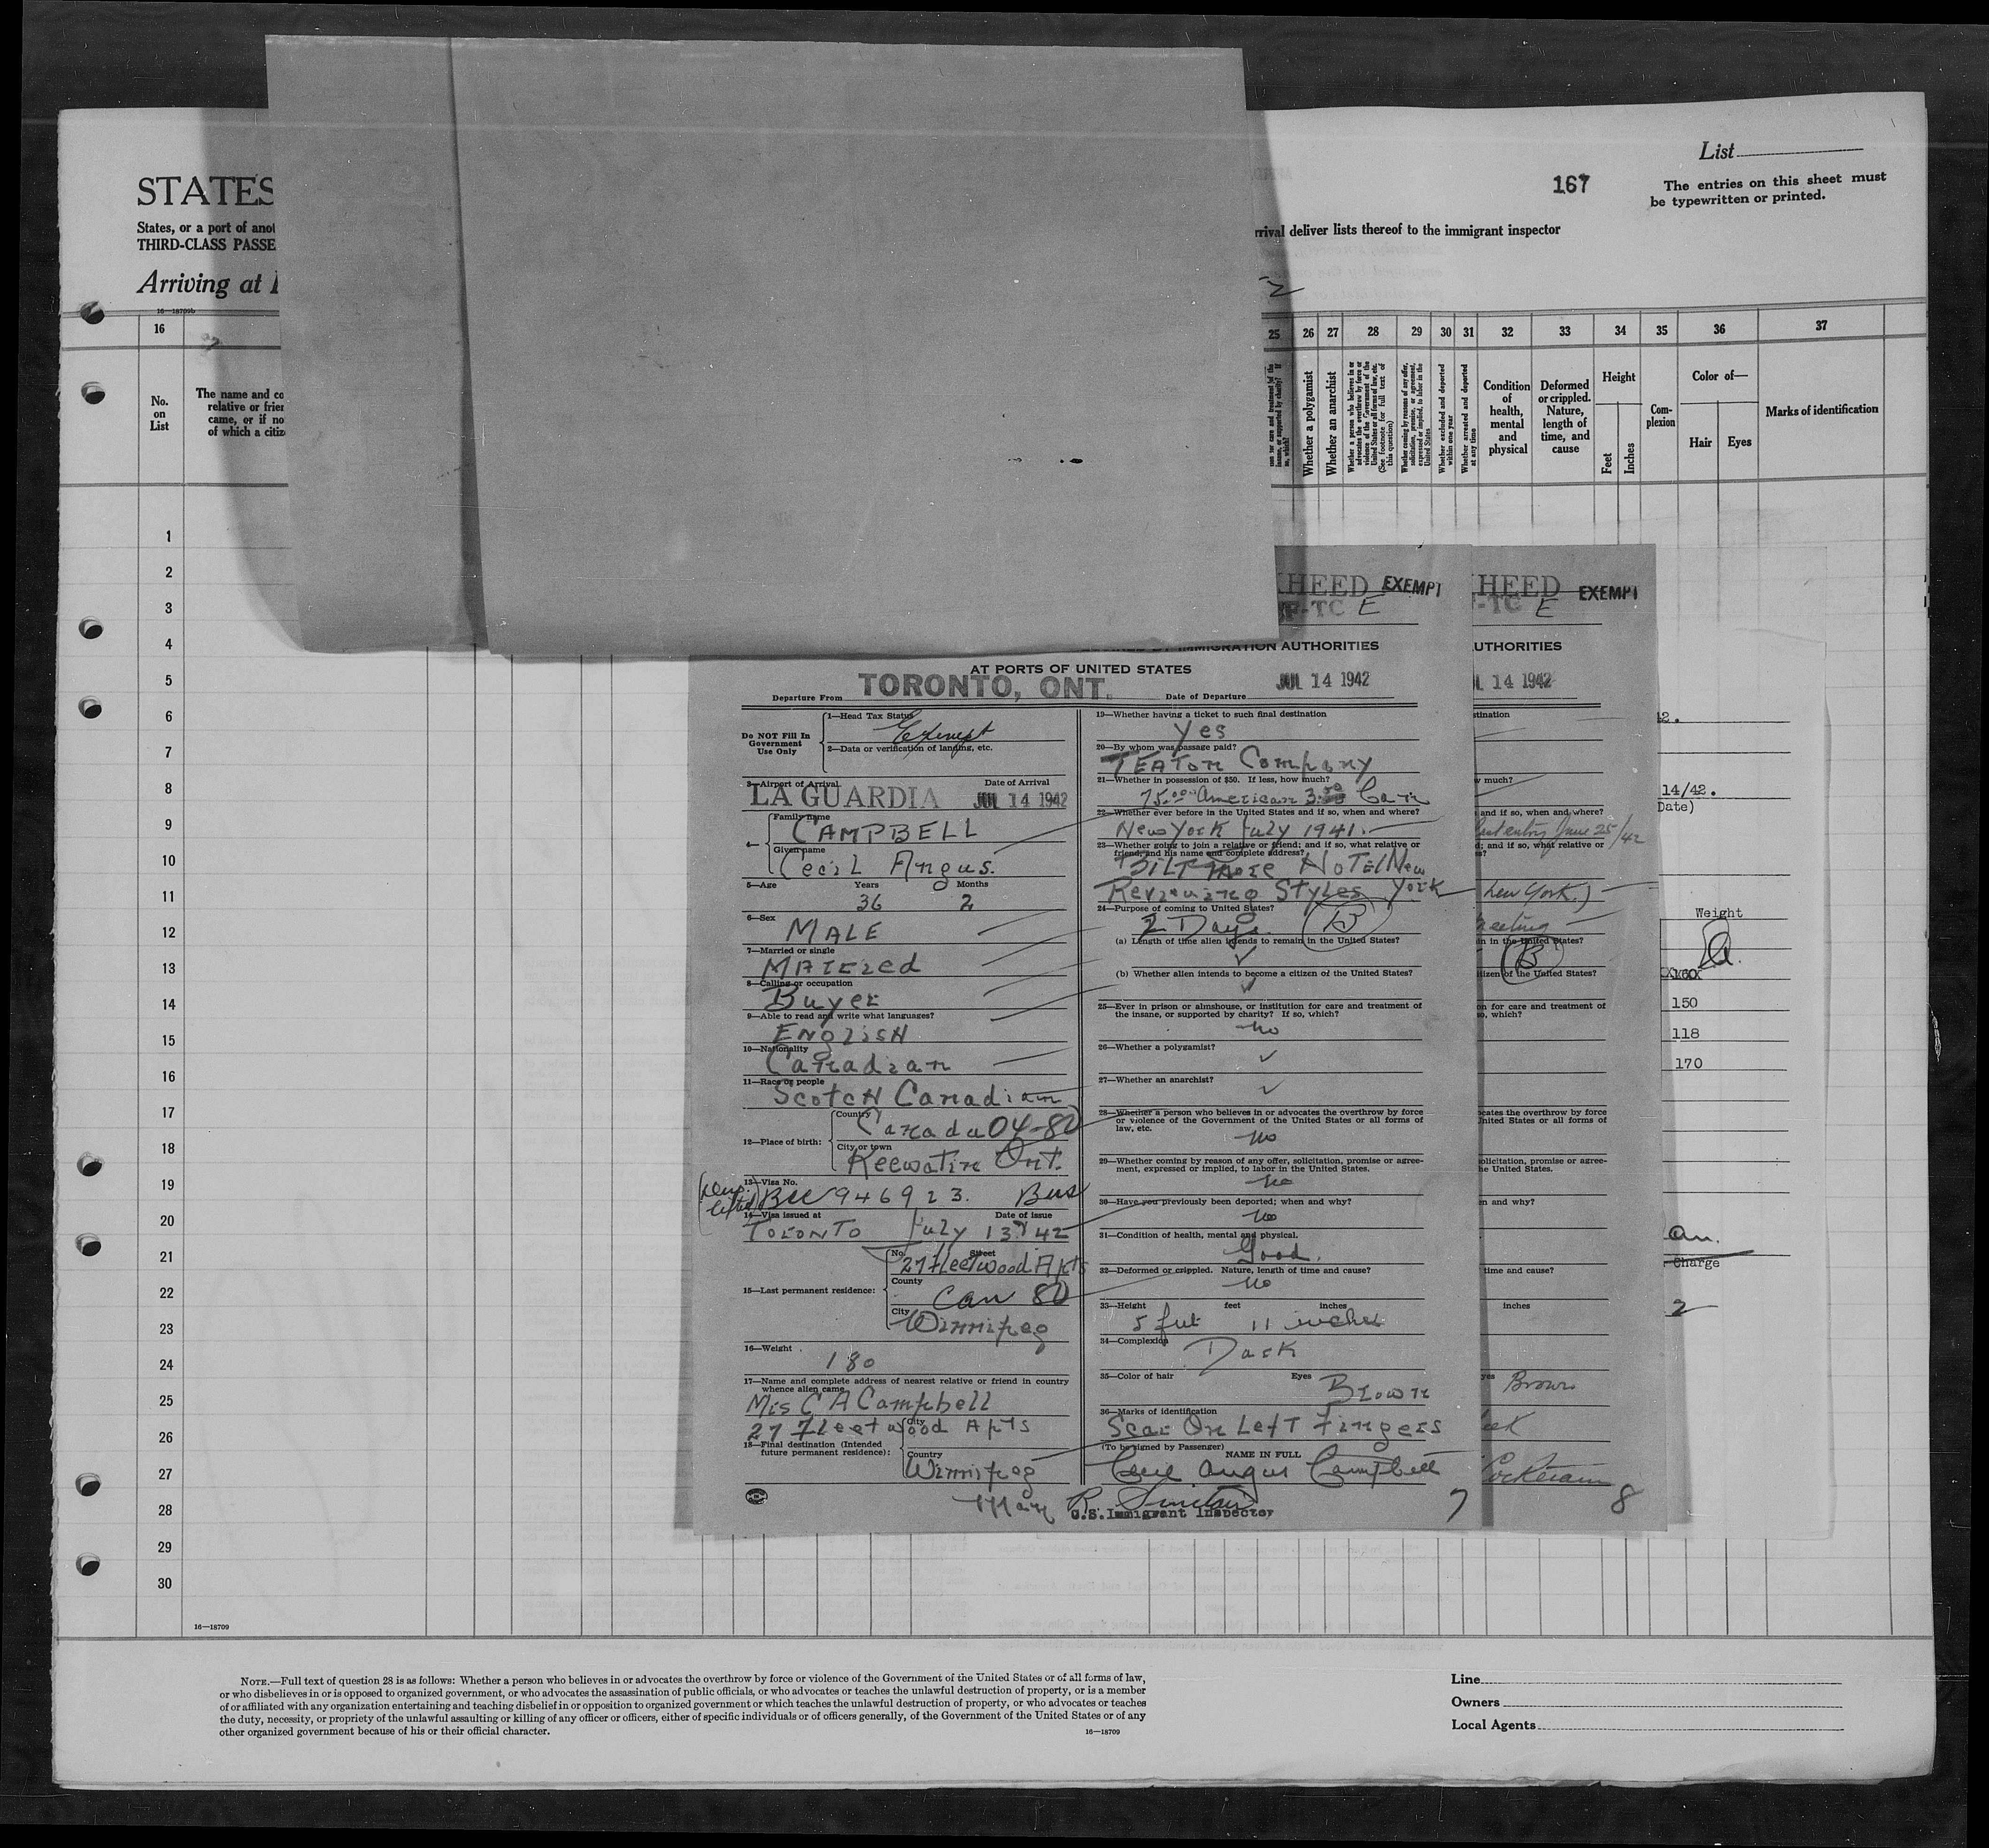 List
167
The entries on this sheet must
be typewritten or printed.
STATES
States, or a port of anot
THIRD-CLASS PASSE
rrival deliver lists thereof to the immigrant inspector
Arriving at
16—18709b
16
25 26 27 28 29 30 31 32 33 34 35 36 37
No.
on
List
The name and co
relative or frien
came, or if no
of which a citiz
Whether a polygamist
Whether an anarchist
Whether a person who believes in or
advocates the overthrow by force or
violence of the Government of the
United States or all forms of law, etc.
(See footnote for full text of
this question)
Whether coming by reasons of any offer,
solicitation, promise, or agreement,
expressed or implied, to labor in the
United States
Whether excluded and deported
within one year
Whether arrested and deported
at any time
Condition
of
health,
mental
and
physical
Deformed
or crippled.
Nature,
length of
time, and
cause
Height
Feet
Inches
Com-
plexion
Color of—
Hair
Eyes
Marks of identification
1
2
3
4
5
6
7
8
9
10
11
12
13
14
15
16
17
18
19
20
21
22
23
24
25
26
27
28
29
30
16—18709
KHEED EXEMPT
F-TC E
IMMIGRATION AUTHORITIES
AT PORTS OF UNITED STATES
Departure From TORONTO, ONT. Date of Departure JUL 14 1942
Do NOT Fill In
Government
Use Only
1—Head Tax Status
Exempt
2—Data or verification of landing, etc.
3—Airport of Arrival Date of Arrival
LA GUARDIA JUL 14 1942
4—
Family name
CAMPBELL
Given name
Cecil Angus.
5—Age Years Months
36 2
6—Sex
MALE
7—Married or single
Married
8—Calling or occupation
Buyer
9—Able to read and write what languages?
ENglisH
10—Nationality
Canadian
11—Race or people
ScotcH Canadian
12—Place of birth:
Country
Canada 04-80
City or town
Keewatin Ont.
13—Visa No.
946923. Bus
14—Visa issued at Date of issue
Toronto July 13 42
15—Last permanent residence:
No. Street
27 Fleetwood Apts
County
Can 80
City
Winnipeg
16—Weight
180
17—Name and complete address of nearest relative or friend in country
whence alien came
Mrs C A Campbell
27 Fleetwood Apts
18—Final destination (Intended
future permanent residence):
City
Country
Winnipeg
19—Whether having a ticket to such final destination
Yes
20—By whom was passage paid?
T EATon Company
21—Whether in possession of $50. If less, how much?
75.00 American 3.50 Can
22—Whether ever before in the United States and if so, when and where?
New York July 1941.
23—Whether going to join a relative or friend; and if so, what relative or
friend, and his name and complete address?
BILTmore HoTEl New
Reviewing Styles York
24—Purpose of coming to United States?
2 Days B
(a) Length of time alien intends to remain in the United States?
(b) Whether alien intends to become a citizen of the United States?
25—Ever in prison or almshouse, or institution for care and treatment of
the insane, or supported by charity? If so, which?
no
26—Whether a polygamist?
27—Whether an anarchist?
28—Whether a person who believes in or advocates the overthrow by force
or violence of the Government of the United States or all forms of
law, etc.
no
29—Whether coming by reason of any offer, solicitation, promise or agree-
ment, expressed or implied, to labor in the United States.
no
30—Have you previously been deported; when and why?
no
31—Condition of health, mental and physical.
Good.
32—Deformed or crippled. Nature, length of time and cause?
no
33—Height feet inches
5 feet 11 inches
34—Complexion
Dark
35—Color of hair Eyes
Brown
36—Marks of identification
Scar On Left Fingers
(To be signed by Passenger) NAME IN FULL
Cecil Angus Campbell
R. Sinclair
U.S. Immigrant Inspector
7
HEED EXEMPT
F-TC E
UTHORITIES
L 14 1942
stination
w much?
and if so, when and where?
Last entry June 25/42
d; and if so, what relative or
New York.)
meeting
n in the United States?
B
tizen of the United States?
on for care and treatment of
so, which?
cates the overthrow by force
United States or all forms of
olicitation, promise or agree-
he United States.
n and why?
time and cause?
inches
yes Brown
8
42.
14/42.
Date)
Weight
150
118
170
an.
Charge
2
NOTE.—Full text of question 28 is as follows: Whether a person who believes in or advocates the overthrow by force or violence of the Government of the United States or of all forms of law,
or who disbelieves in or is opposed to organized government, or who advocates the assassination of public officials, or who advocates or teaches the unlawful destruction of property, or is a member
of or affiliated with any organization entertaining and teaching disbelief in or opposition to organized government or which teaches the unlawful destruction of property, or who advocates or teaches
the duty, necessity, or propriety of the unlawful assaulting or killing of any officer or officers, either of specific individuals or of officers generally, of the Government of the United States or of any
other organized government because of his or their official character.
16—18709
Line
Owners
Local Agents